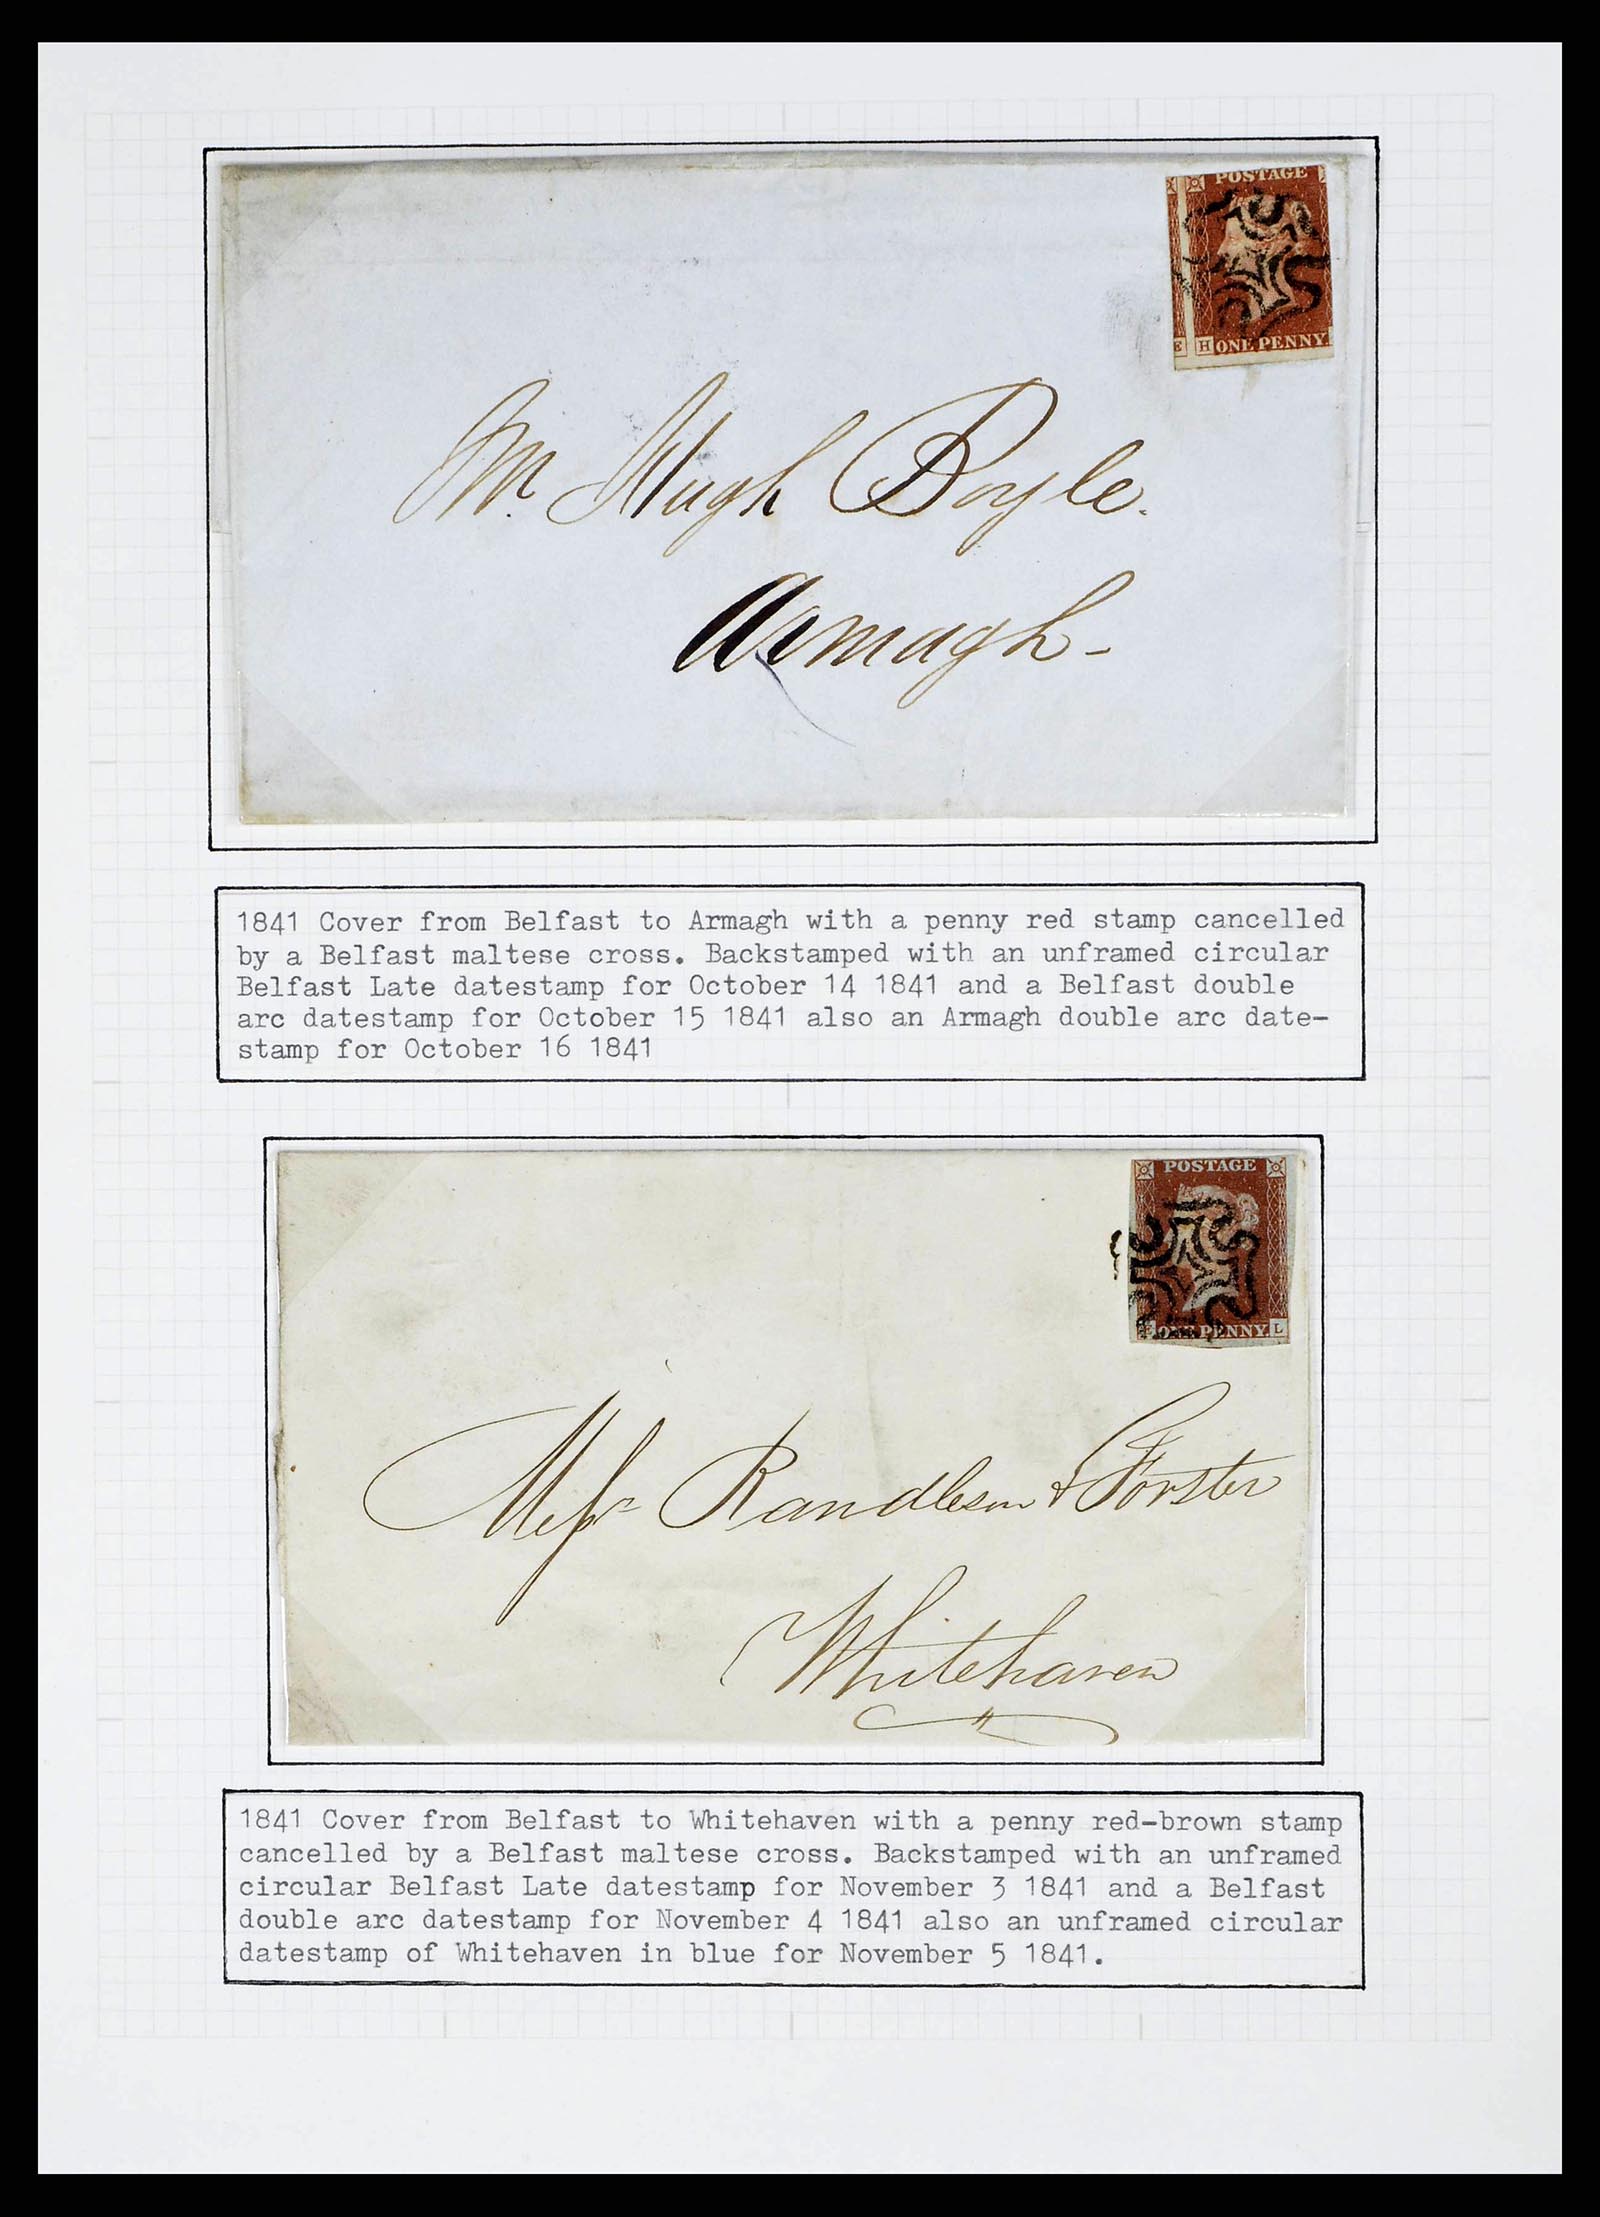 POSTAGE
E H ONE PENNY
Mr. Hugh Boyle.
Armagh-
1841 Cover from Belfast to Armagh with a penny red stamp cancelled
by a Belfast maltese cross. Backstamped with an unframed circular
Belfast Late datestamp for October 14 1841 and a Belfast double
arc datestamp for October 15 1841 also an Armagh double arc date-
stamp for October 16 1841
POSTAGE
E ONE PENNY L
Messrs Randleson & Forster
Whitehaven
1841 Cover from Belfast to Whitehaven with a penny red-brown stamp
cancelled by a Belfast maltese cross. Backstamped with an unframed
circular Belfast Late datestamp for November 3 1841 and a Belfast
double arc datestamp for November 4 1841 also an unframed circular
datestamp of Whitehaven in blue for November 5 1841.